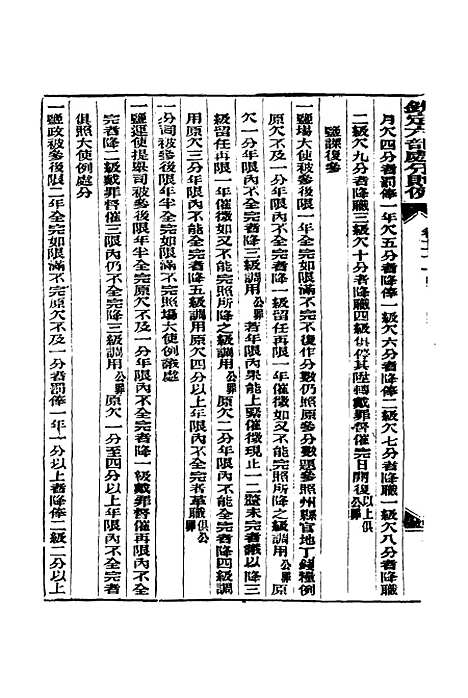 欽定六部處分則例
月欠四分者罰俸一年欠五分者降俸一級欠六分者降俸二級欠七分者降職一級欠八分者降職
二級欠九分者降職三級欠十分者降職四級俱停其陞轉戴罪督催完日開復以上俱公罪
鹽課復參
一鹽場大使被參後限一年全完如限滿不完不復作分數仍照原參分數題參照州縣官地丁錢糧例
原欠不及一分年限內不全完者降一級留任再限一年催徵如又不能完照所降之級調用公罪原
欠一分年限內不全完者降三級調用公罪若年限內果能上緊催徵現止一二釐未完者議以降三
級留任再限一年催徵如又不能完照所降之級調用公罪原欠二分年限內不能全完者降四級調
用原欠三分年限內不能全完者降五級調用原欠四分以上年限內不全完者革職俱公罪
一分司被參後限年半全完如限滿不完照場大使例議處
一鹽運使提舉司被參後限年半全完如限滿不完原欠不及一分年限內不全完者降一級戴罪督催再限內不全
完者降二級戴罪督催三限內仍不全完者降三級調用公罪原欠一分至四分以上年限內不全完者
俱照大使例處分
一鹽政被參後限二年全完如限滿不完原欠不及一分者罰俸一年一分以上者降俸二級二分以上